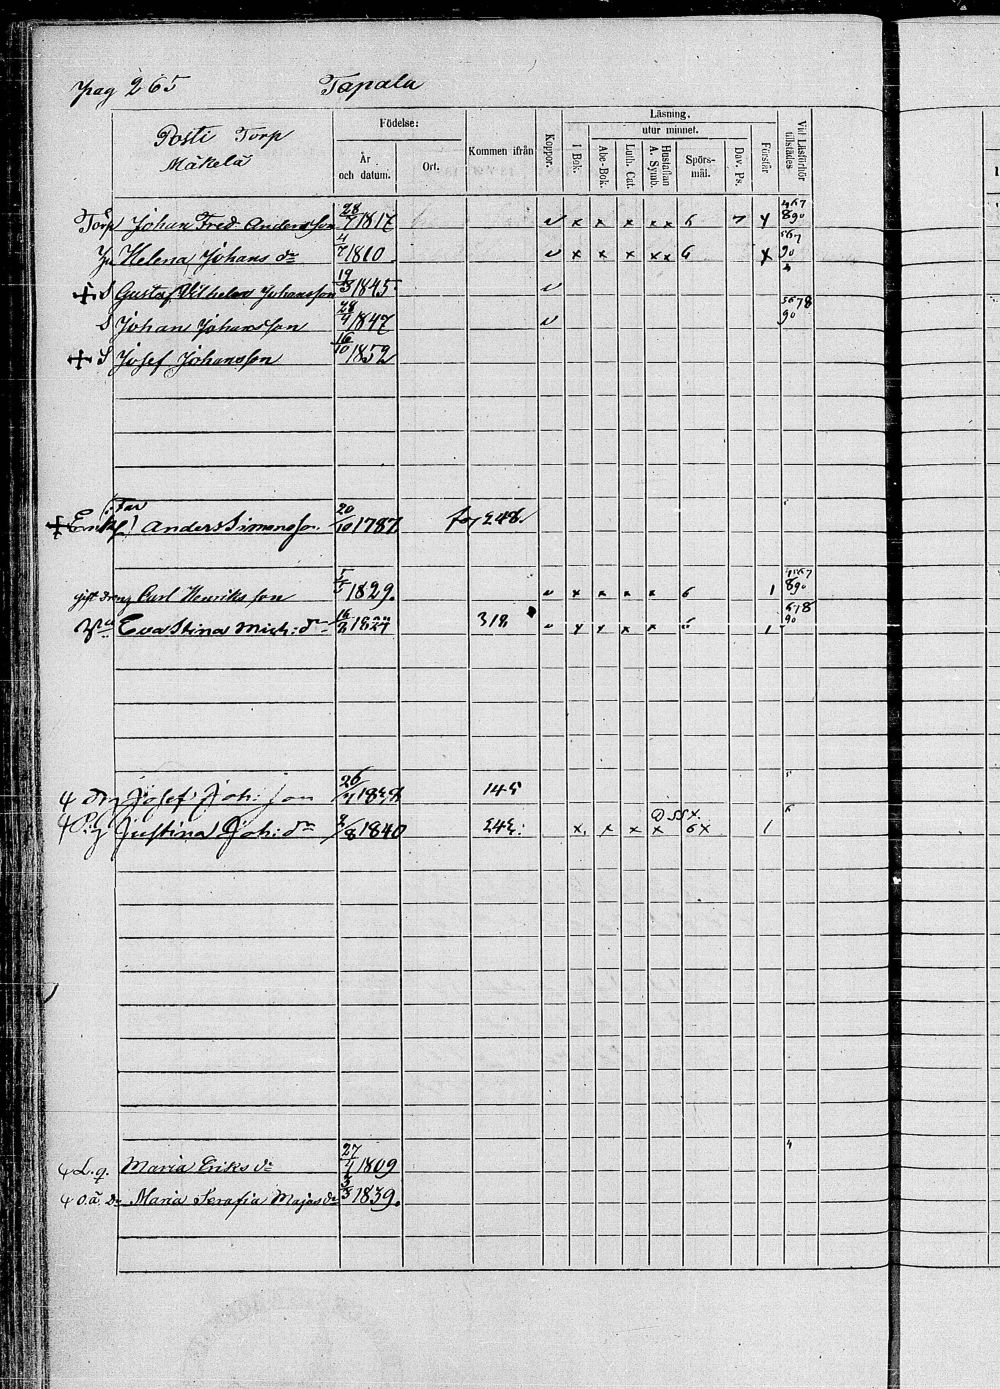 pag 265 Tapala
Posti Torp
Mäkelä
Födelse:
År och datum.
Ort.
Kommen ifrån
Koppor.
Läsning.
I Bok.
utur minnet.
Abc-Bok.
Luth. Cat.
Hustaflan A. Symb.
Spörs-mål.
Dav. Ps.
Förstår
Vid Läsförhör tillstädes
Torp Johan Fred Andersson 28/7 1817 v x x x x x 6 7 x 4567 890
Helena Johans dr 4/7 1810 v x x x x x 6 x 567 90
+ S Gustaf Wilhelm Johansson 19/3 1845 v
S Johan Johansson 28/9 1847 v 5678 90
+ S Josef Johansson 16/10 1852
Far
+ Anders Simonsson 20/10 1787 248.
gift dreng Carl Henriksson 5/5 1829. v x x x x 6 1 890
Eva Stina Mich: dr 16/2 1827 312 x x x x 6 1 678 90
Josef Joh: son 26 145
Justina Joh: dr /8 1840 242: x, x x x 6x 1 6
L. q. Maria Eriks dr 27/4 1809 4
o.ä. dr Maria Serafia Majas dr 3/3 1839.